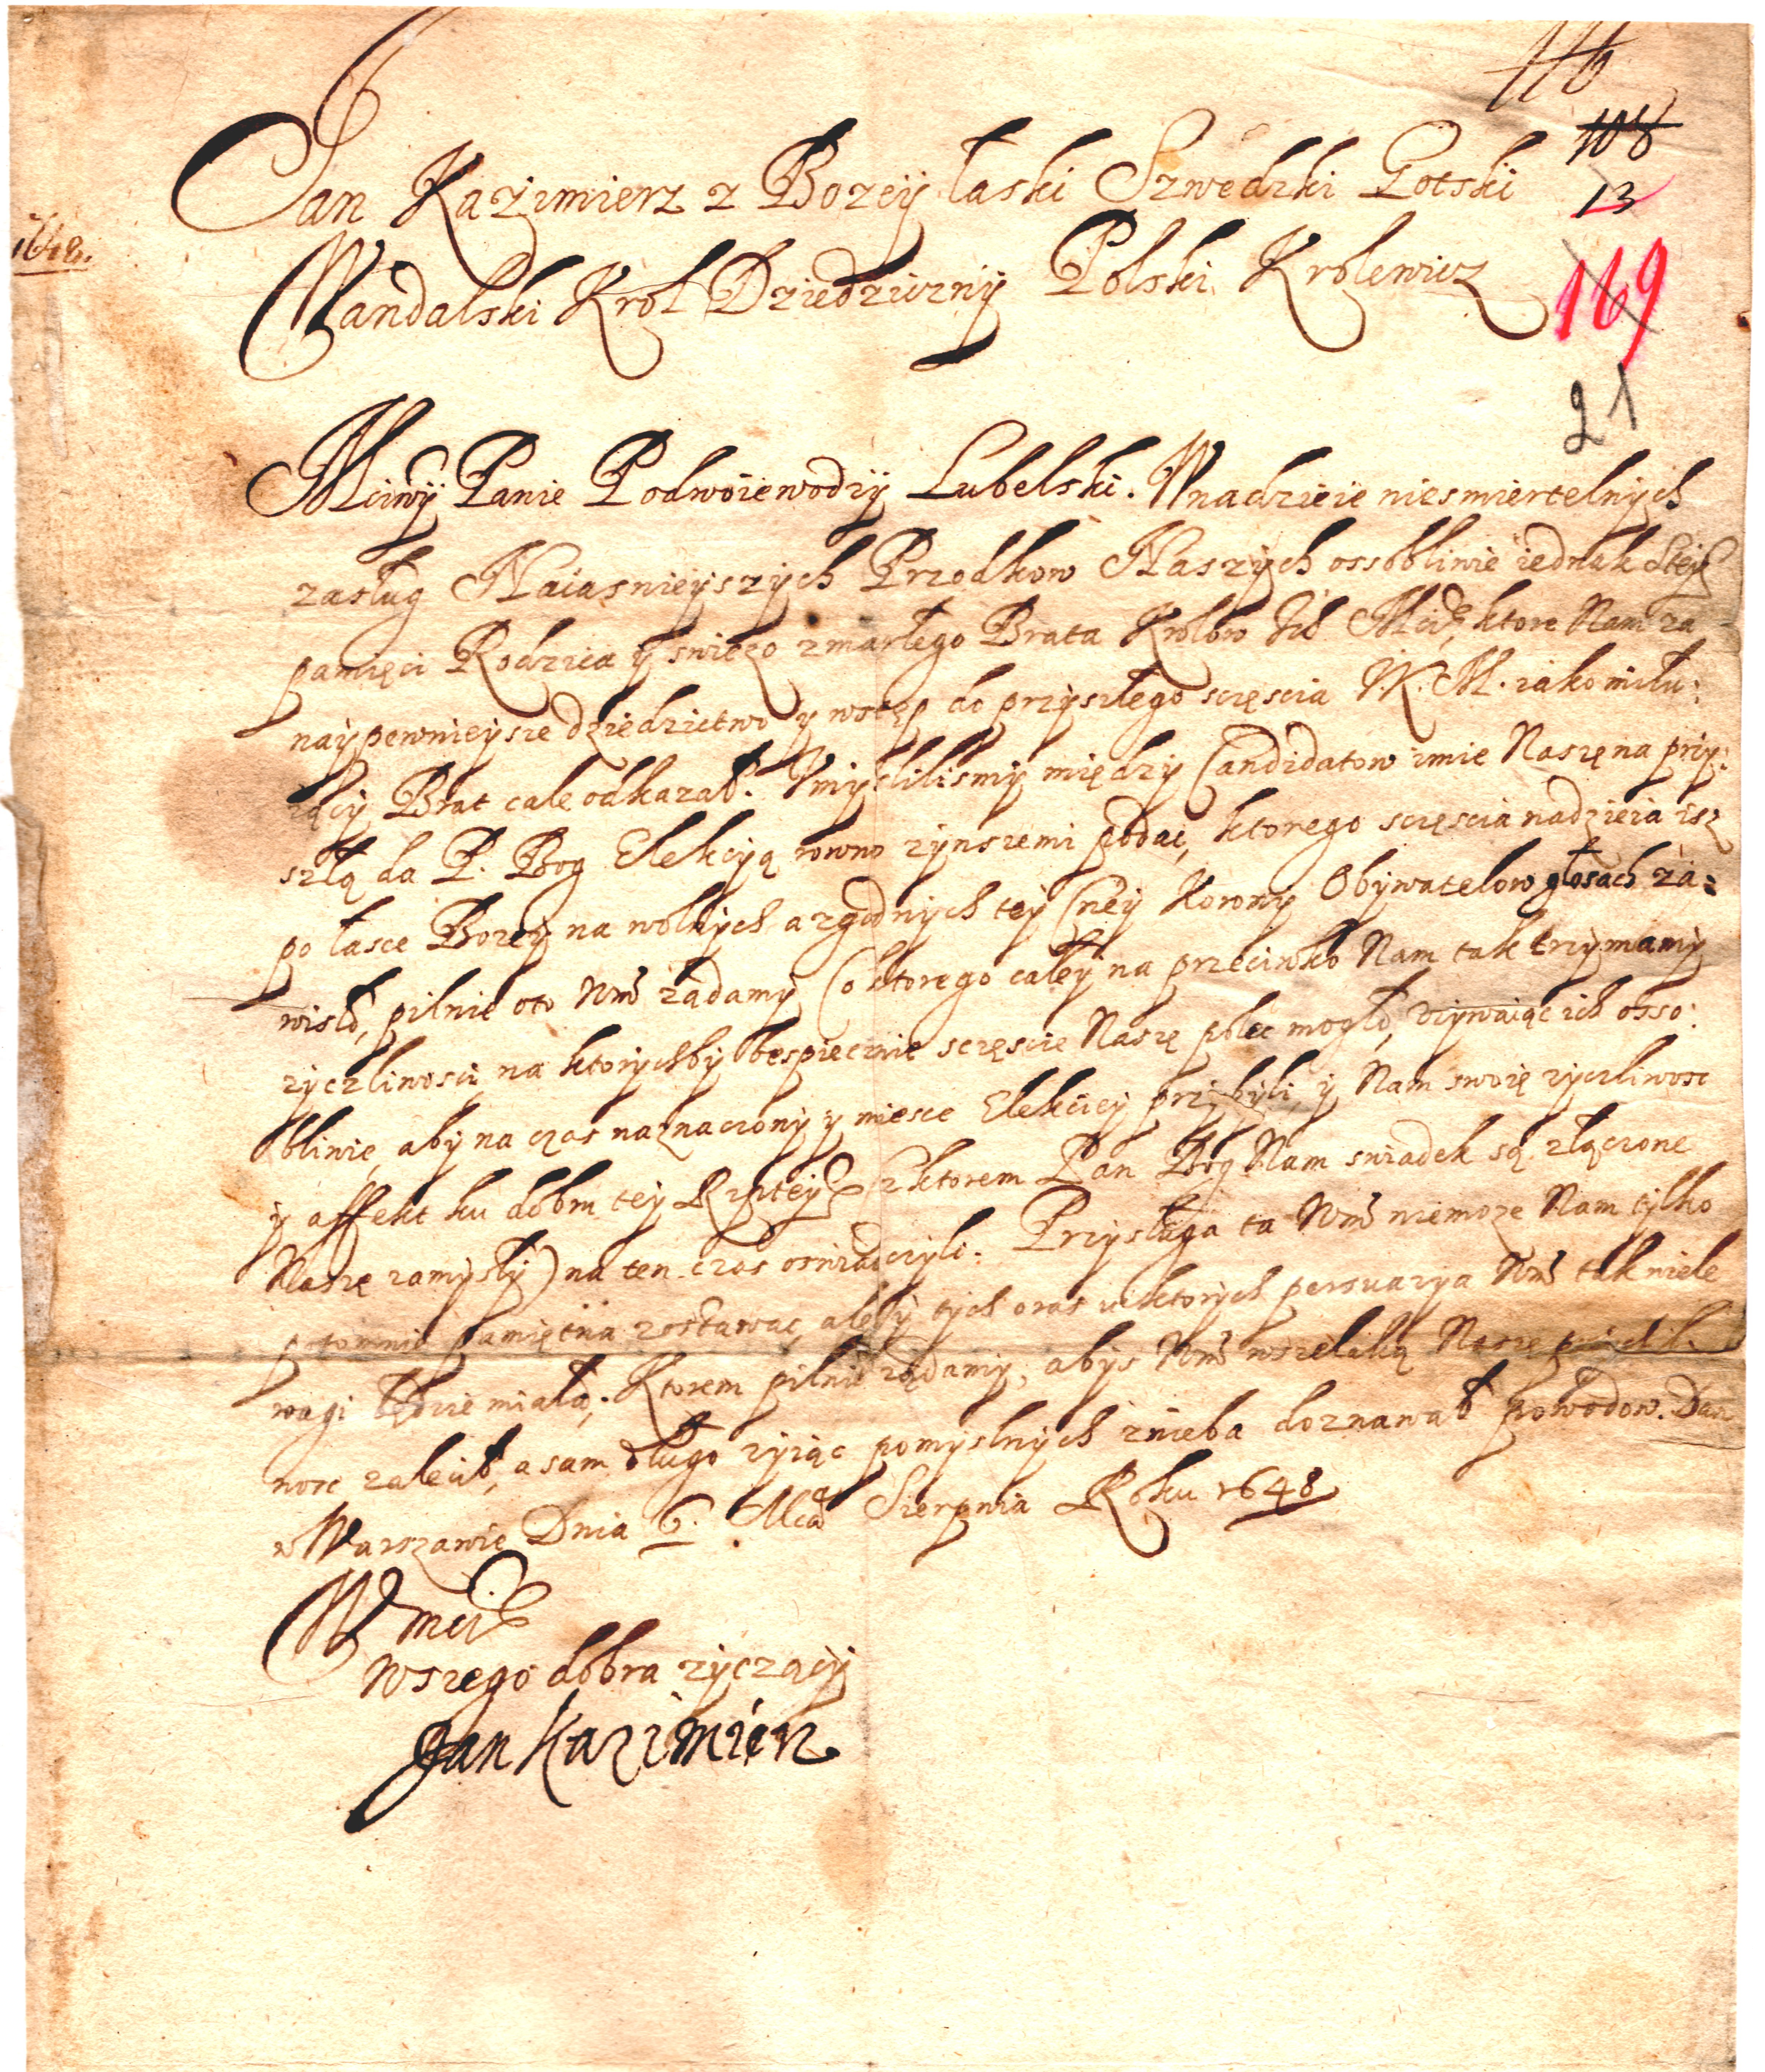 116
108
Jan Kazimierz z Bozey łaski Szwedzki Gotski
13
1648.
Wandalski Krol Dziedziczny Polski Krolewicz
169
21
Mciwy Panie Podwoiewodzy Lubelski. W nadzieie niesmiertelnych
zasług Naiasnieyszych Przodkow Naszych ossobliwie iednak Stey
pamięci Rodzica y swiezo zmarłego Brata Krolow Ich Mci, ktore Nam za
naypewnieysze dziedzictwo y wstęp do przyszłego sczęscia J. K. M. iako miłu:
iący Brat cale odkazał. Vmyslilismy między Candidatow imie Naszę na przy:
szłą da P. Bog Elekcyą rowno z ynszemi podac, ktorego sczęscia nadzieia isz
po łasce Bozey na wolnych a zgodnych tey Cney Korony Obywatelow głosach za:
wisła, pilnie oto Wm ządamy (o ktorego całey na przeciwko Nam tak trzymamy
zyczliwosci, na ktorychby bespiecznie sczęscie Naszę polec mogło, vzywaiąc ich osso:
bliwie, aby na czas naznaczony y miesce Elekciey przybyli, y Nam swoię zyczliwosc
y affekt ku dobru tey Rzptey (z ktorem Pan Bog Nam swiadek są złączone
Naszę zamysły) na ten czas oswiadczyli. Przysługa ta Wm niemoze Nam tylko
potomnie pamiętna zostawac, ale y tych oraz v ktorych persuazya Wm tak wiele
wagi będzie miała; Ktorem pilnie ządamy, abys Wm wszelaką Naszę
nosc zalecił, a sam długo zyiąc pomyslnych z nieba doznawał powodow. Dan
w Warszawie Dnia 6. Mca Sierpnia Roku 1648
W mci
wszego dobra zyczący
Jan Kazimierz